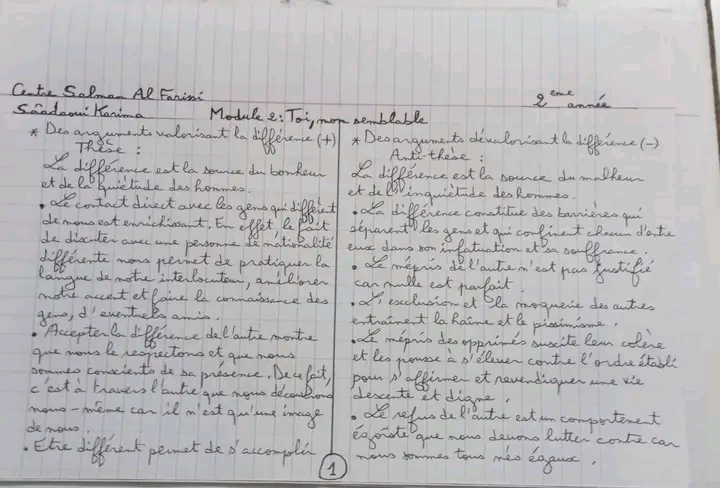 Centre Salman Al Farissi
2eme année
Sâadaoui Karima
Module 2: Toi, mon semblable
* Des arguments valorisant la différence (+)
Thèse :
La différence est la source du bonheur
et de la quiétude des hommes.
• Le contact direct avec les gens qui diffèrent
de nous est enrichissant. En effet, le fait
de discuter avec une personne de nationalité
différente nous permet de pratiquer la
langue de notre interlocuteur, améliorer
notre accent et faire la connaissance des
gens, d'eventuels amis.
• Accepter la différence de l'autre montre
que nous le respectons et que nous
sommes conscients de sa présence. De ce fait,
c'est à travers l'autre que nous découvrons
nous-même car il n'est qu'une image
de nous.
• Etre différent permet de s'accomplir
* Des arguments dévalorisant la différence (-)
Anti-thèse :
La différence est la source du malheur
et de l'inquiétude des hommes.
• La différence constitue des barrières qui
séparent les gens et qui confinent chacun d'entre
eux dans son infatuation et sa souffrance.
• Le mépris de l'autre n'est pas justifié
car nulle est parfait.
• L'exclusion et la moquerie des autres
entraînent la haîne et le pissimisme.
• Le mépris des opprimés suscite leur colère
et les pousse à s'élever contre l'ordre établi
pour s'affirmer et revendiquer une vie
descente et digne.
• Le refus de l'autre est un comportement
égoïste que nous devons lutter contre car
nous sommes tous nés égaux.
1